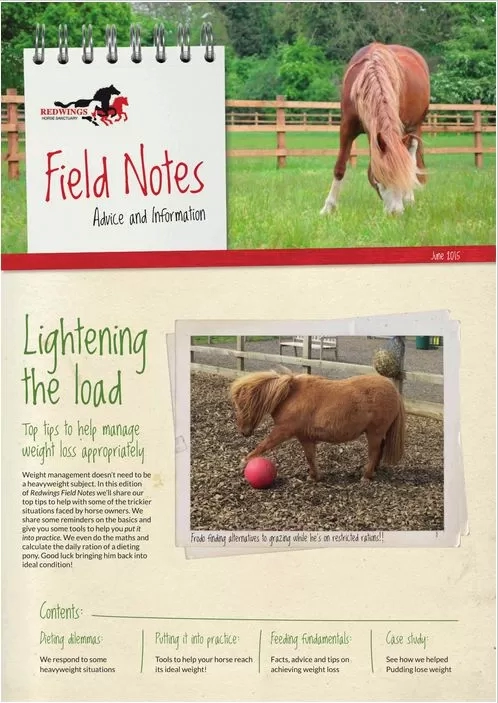 REDWINGS
HORSE SANCTUARY
Field Notes
Advice and Information
June 2015
Lightening
the load
Top tips to help manage
weight loss appropriately
Weight management doesn't need to be
a heavyweight subject. In this edition
of Redwings Field Notes we'll share our
top tips to help with some of the trickier
situations faced by horse owners. We
share some reminders on the basics and
give you some tools to help you put it
into practice. We even do the maths and
calculate the daily ration of a dieting
pony. Good luck bringing him back into
ideal condition!
Frodo finding alternatives to grazing while he's on restricted rations!!
Contents:
Dieting dilemmas:
We respond to some
heavyweight situations
Putting it into practice:
Tools to help your horse reach
its ideal weight!
Feeding fundamentals:
Facts, advice and tips on
achieving weight loss
Case study:
See how we helped
Pudding lose weight